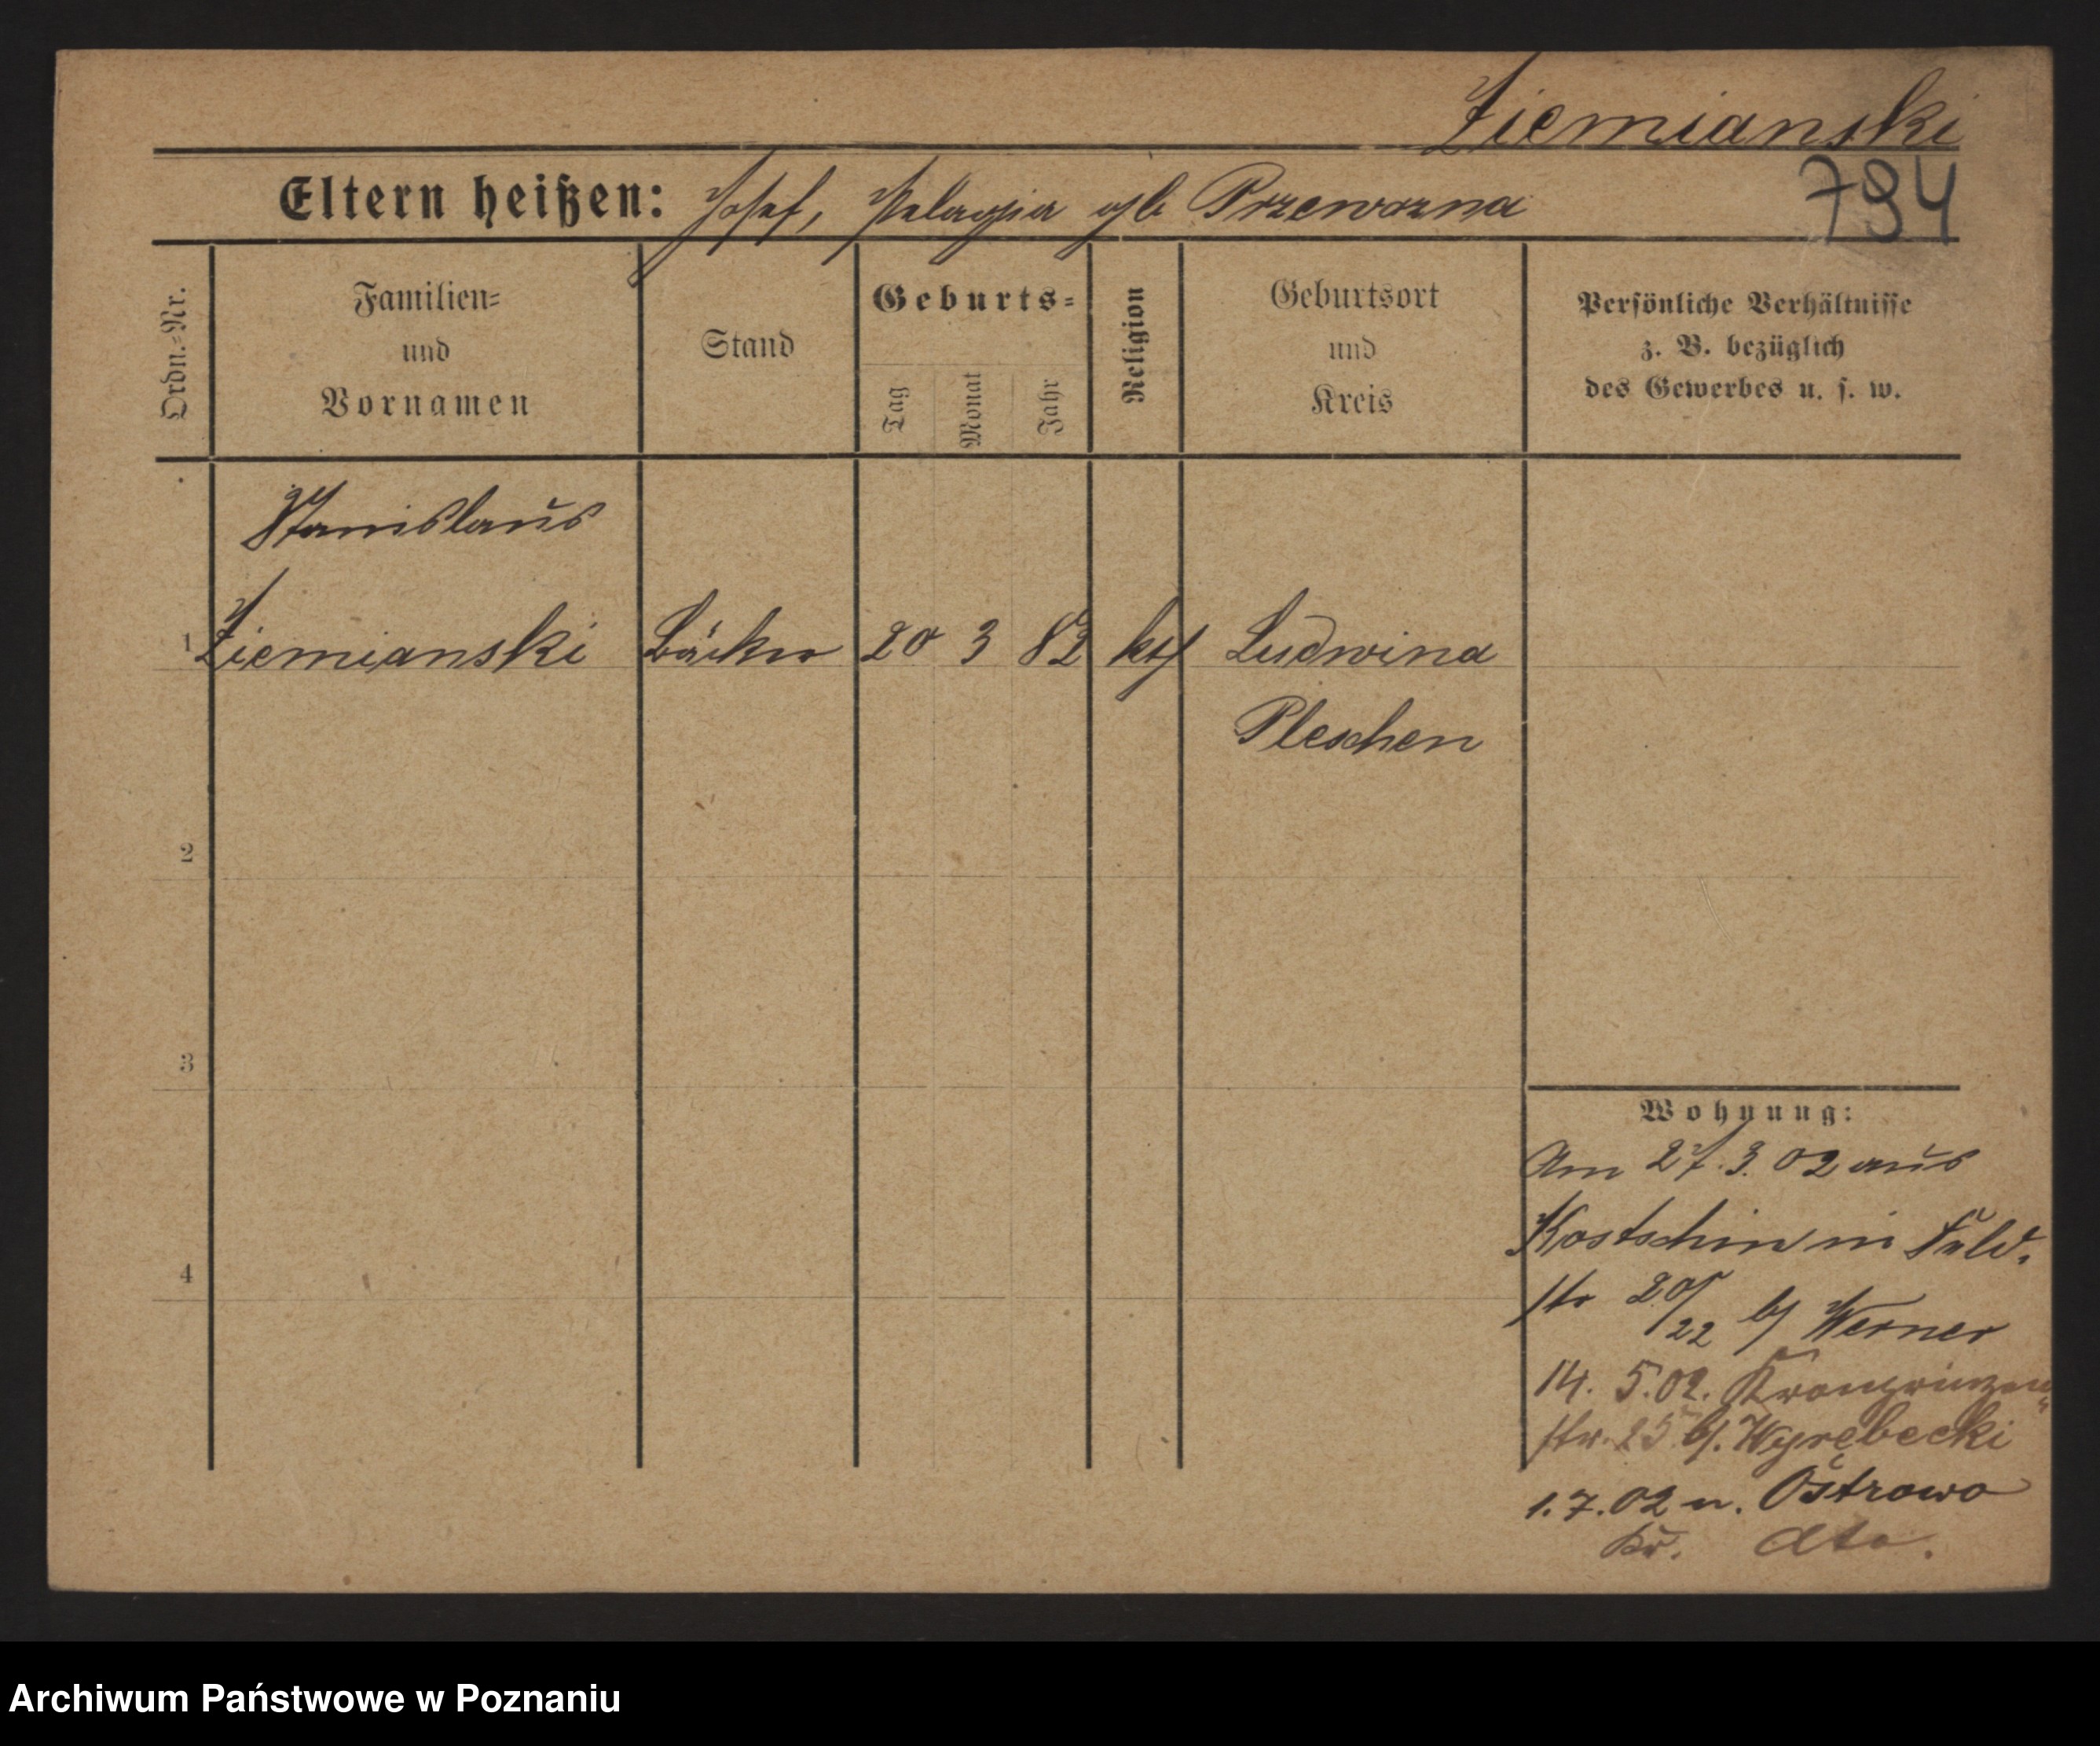 Ziemianski
794
Eltern heißen: Josef, Pelagia gb Przeworna
Ordn.-Nr.
Familien-
und
Vornamen
Stand
Geburts-
Tag
Monat
Jahr
Religion
Geburtsort
und
Kreis
Persönliche Verhältnisse
z. B. bezüglich
des Gewerbes u. s. w.
Stanislaus
1 Ziemianski Bäcker 20 3 82 kth Ludwina
Pleschen
2
3
4
Wohnung:
Am 27.3.02 aus
Kostschin in Feld-
str 20/22 b/ Werner
14. 5.02. Kronprinzen-
str. 25 b/. Wyrębecki
1.7.02 n. Ostrowo
Kr. dto.
Archiwum Państwowe w Poznaniu